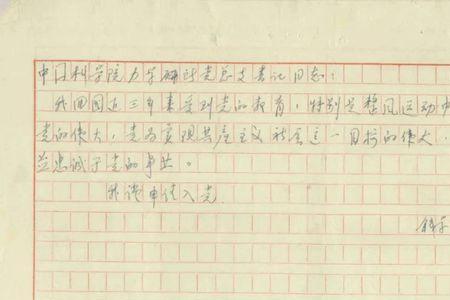 中国科学院力学研究所党总支书记同志：
我回国近三年来受到党的教育，特别是整风运动中
党的伟大，党为实现共产主义社会这一目标的伟大，
并忠诚于党的事业。
我谨申请入党
钱